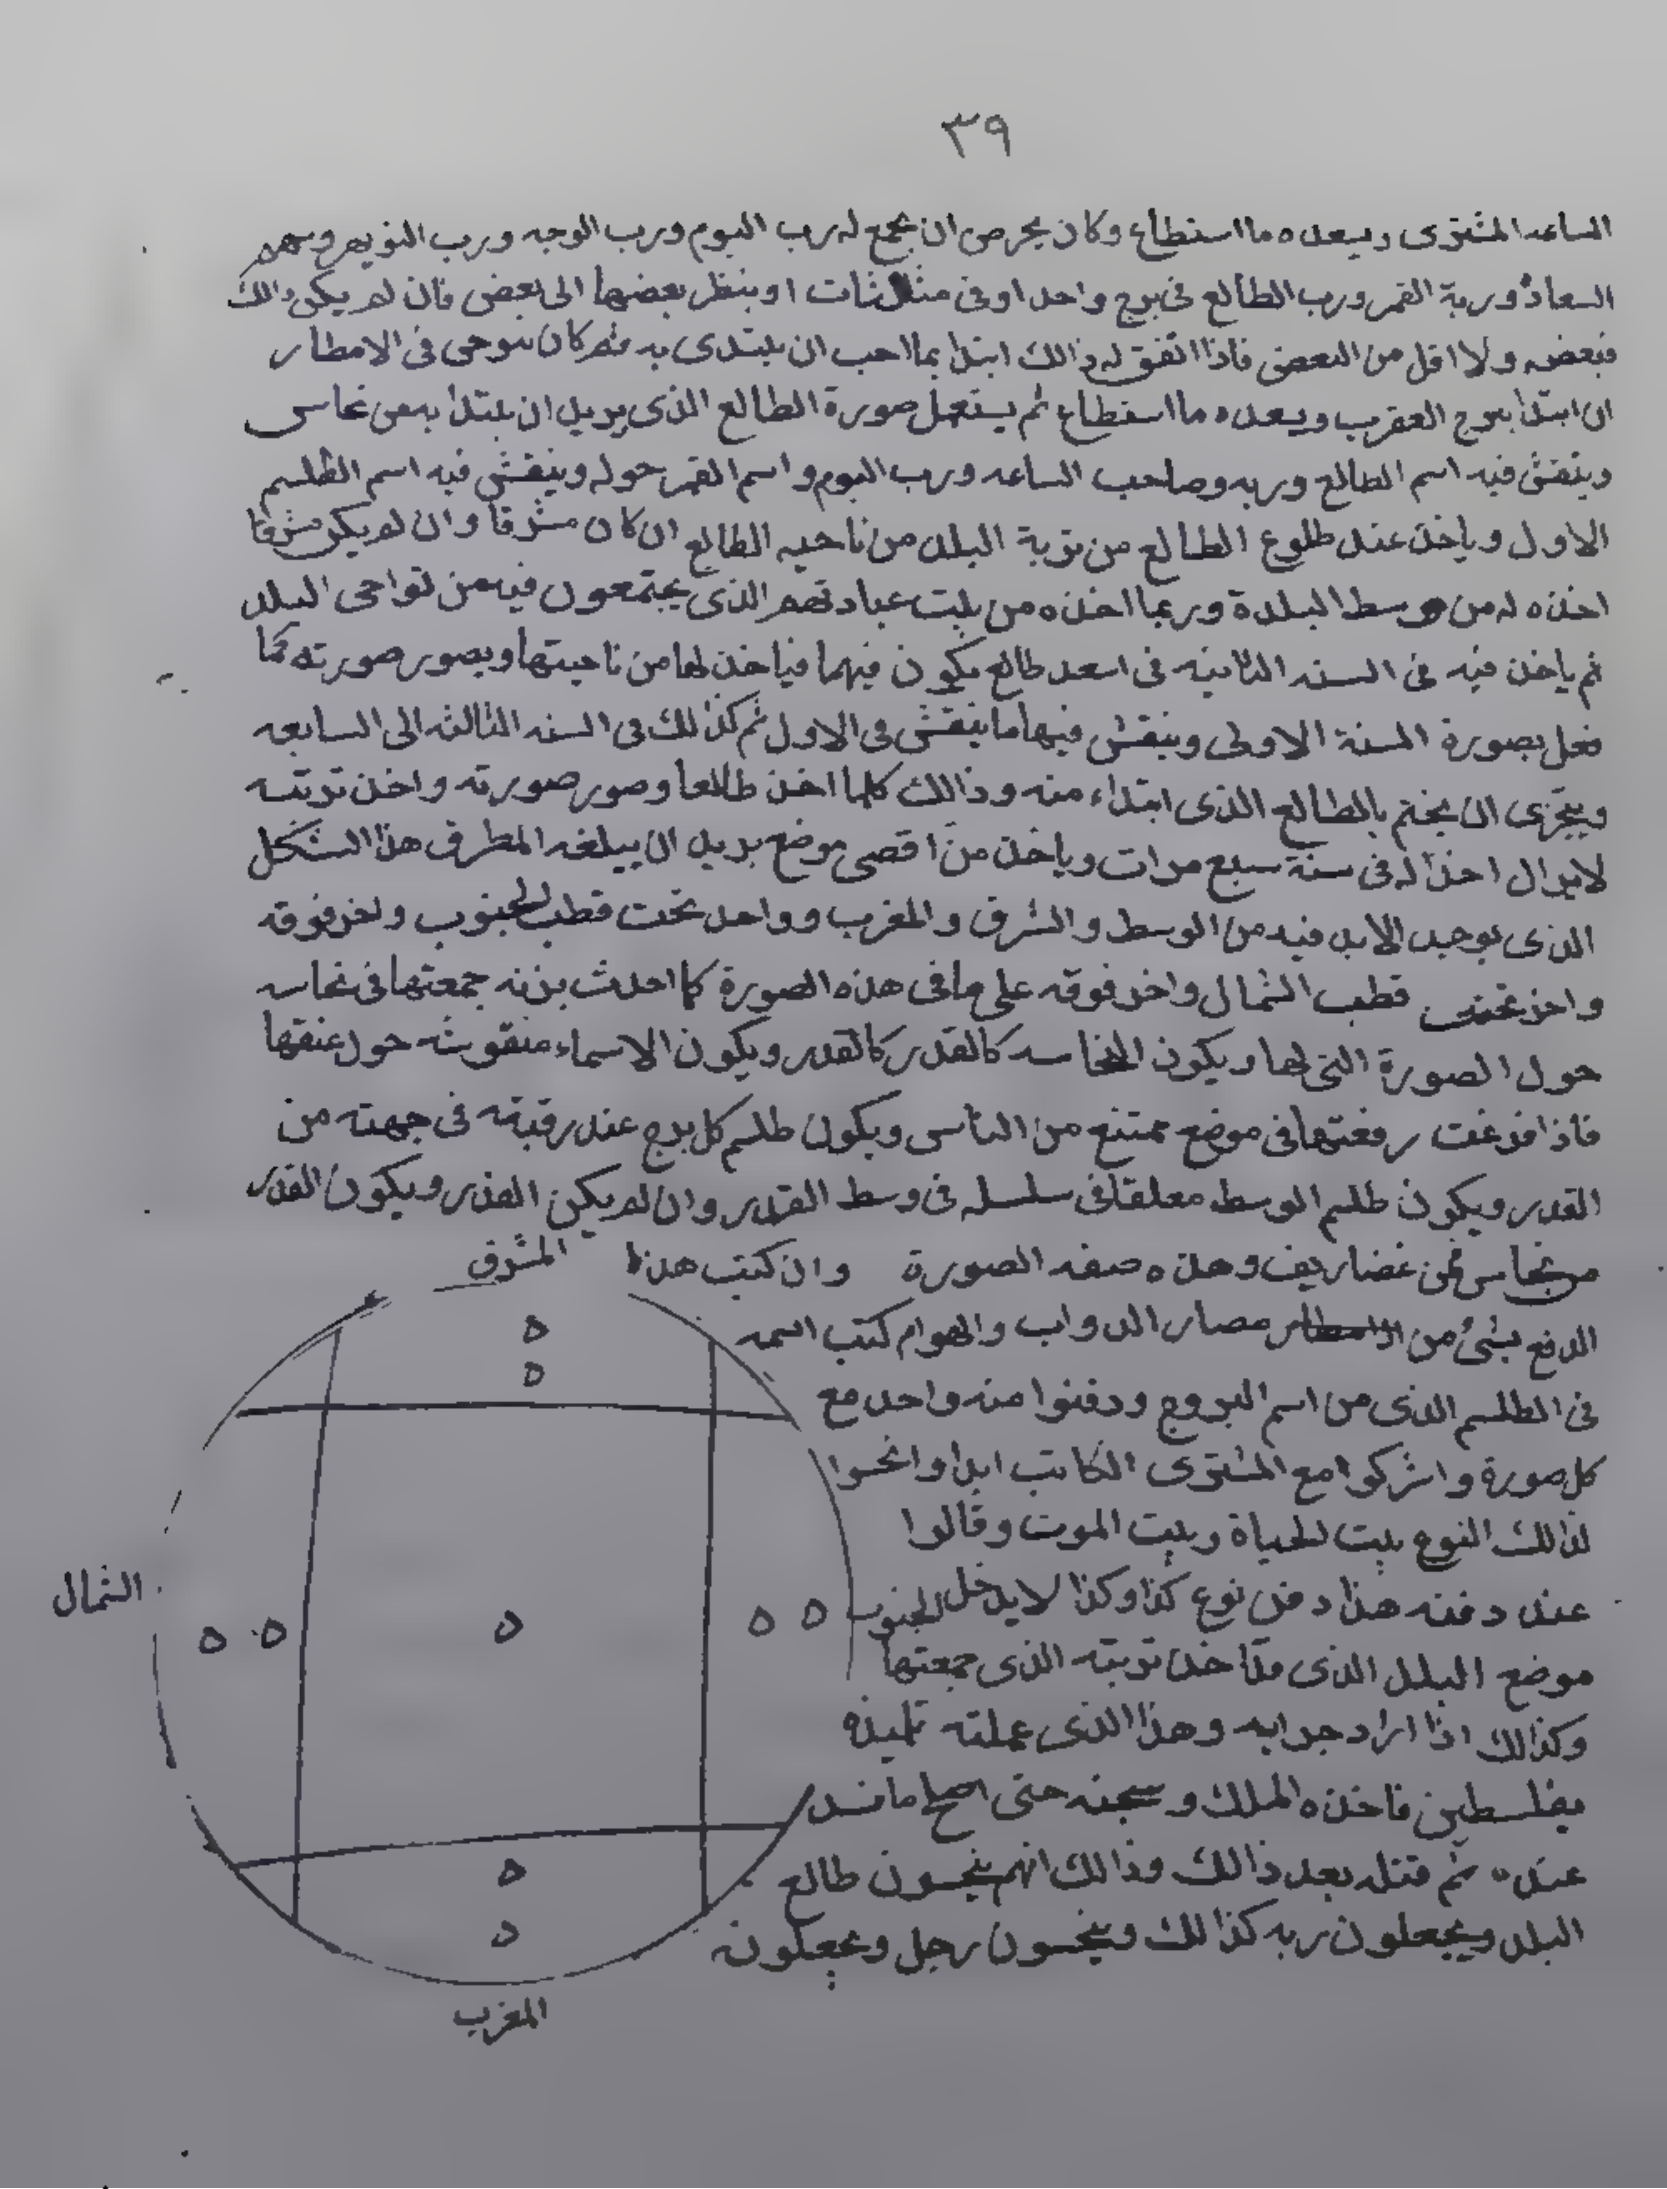 ٣٩
الساعه المشترى ويسعده ما استطاع وكان يحرص ان يجمع له رب اليوم ورب الوجه ورب النويهر وسهم
السعادة وربة القمر ورب الطالع فى برج واحد او فى مثلثات او ينظر بعضها الى بعض فان لم يكن ذالك
فبعضه ولا اقل من البعض فاذا اتفق له ذالك ابتدا بما احب ان يبتدى به ثم كان يتوخى فى الامطار
ان ابتدا ببرج العقرب ويسعده ما استطاع ثم يستعمل صورة الطالع الذى يريد ان يبتدا به من نحاس
وينقش فيه اسم الطالع وربه وصاحب الساعه ورب اليوم واسم القمر حوله وينقش فيه اسم الطلسم
الاول وياخذ عند طلوع الطالع من تربة البلد من ناحيه الطالع ان كان مشرقا وان لم يكن مشرقا
اخذه له من وسط البلدة وربما اخذه من بيت عبادتهم الذى يجتمعون فيه من نواحى البلد
ثم ياخذ فيه فى السنه الثانيه فى اسعد طالع يكون فيهما فياخذ لها من ناحيتها ويصور صورته كما
فعل بصورة السنة الاولى وينقش فيها ما ينقش فى الاول ثم كذالك فى السنه الثالثه الى السابعه
ويتحرى ان يختم بالطالع الذى ابتداء منه وذالك كلما اخذ طالعا وصور صورته واخذ تربته
لايزال اخذا له فى سنة سبع مرات وياخذ من اقصى موضع يريد ان يبلغه المطر فى هذا الشكل
الذى يوجد الابد فيه من الوسط والشرق والمغرب وواحد تحت قطب الجنوب واخر فوقه
واخر تحت قطب الشمال واخر فوقه على ما فى هذه الصورة كلما احدث بزنه جمعتها فى نحاسه
حول الصورة التى لها ويكون النحاسه كالقدر كالقدر ويكون الاسماء منقوشه حول عنقها
فاذا فرغت رفعتها فى موضع ممتنع من الناس ويكون طلسم كل برج عند رقبته فى جهته من
القدر ويكون طلسم الوسط معلقا فى سلسله فى وسط القدر وان لم يكن القدر ويكون القدر
من نحاس فمن غضاريف وهذه صفه الصورة وان كتب هذا
المشرق
الدفع بشئ من مصار الدواب والهوام كتب اسمه
فى الطلسم الذى من اسم البروج ودفنوا منه واحد مع
كل صورة واشركوا مع المشترى الكاتب ابدا وانحسوا
لذالك النوع بيت الحياة وبيت الموت وقالوا
عند دفنه هذا دفن نوع كذا وكذا لا يدخل
الجنوب
الشمال
موضع البلد الذى قد اخذ تربته الذى جمعتها
وكذالك اذا اراد جوابه وهذا الذى عملته تلميذه
بفلسطين فاخذه الملك وسجنه حتى اصلح ما فسد
عنده ثم قتله بعد ذالك وذالك انهم ينحسون طالع
البلد ويجعلون ربه كذالك وينحسون زحل ويجعلون
المغرب